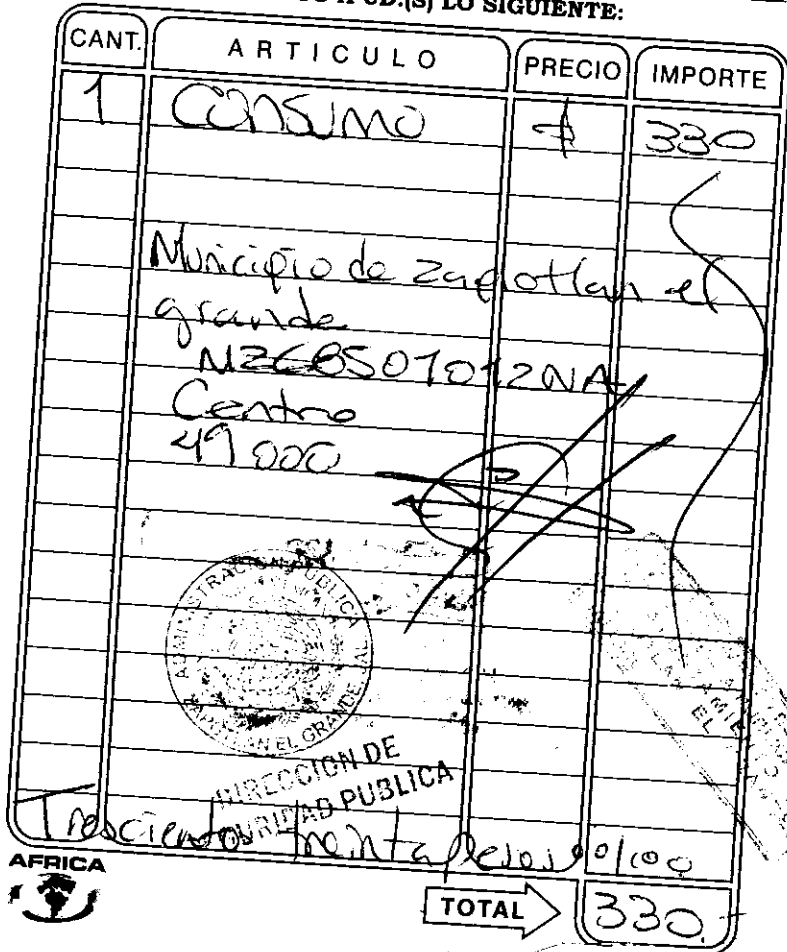 UD.(S) LO SIGUIENTE:
CANT. ARTICULO PRECIO IMPORTE
1 CONSUMO $ 330
Municipio de Zapotlan el
grande
MZG8501012NA
Centro
49000
ADMINISTRACION PUBLICA
ZAPOTLAN EL GRANDE, JAL
DIRECCION DE
SEGURIDAD PUBLICA
Trescientos treinta pesos 00/100
AFRICA
TOTAL 330.-